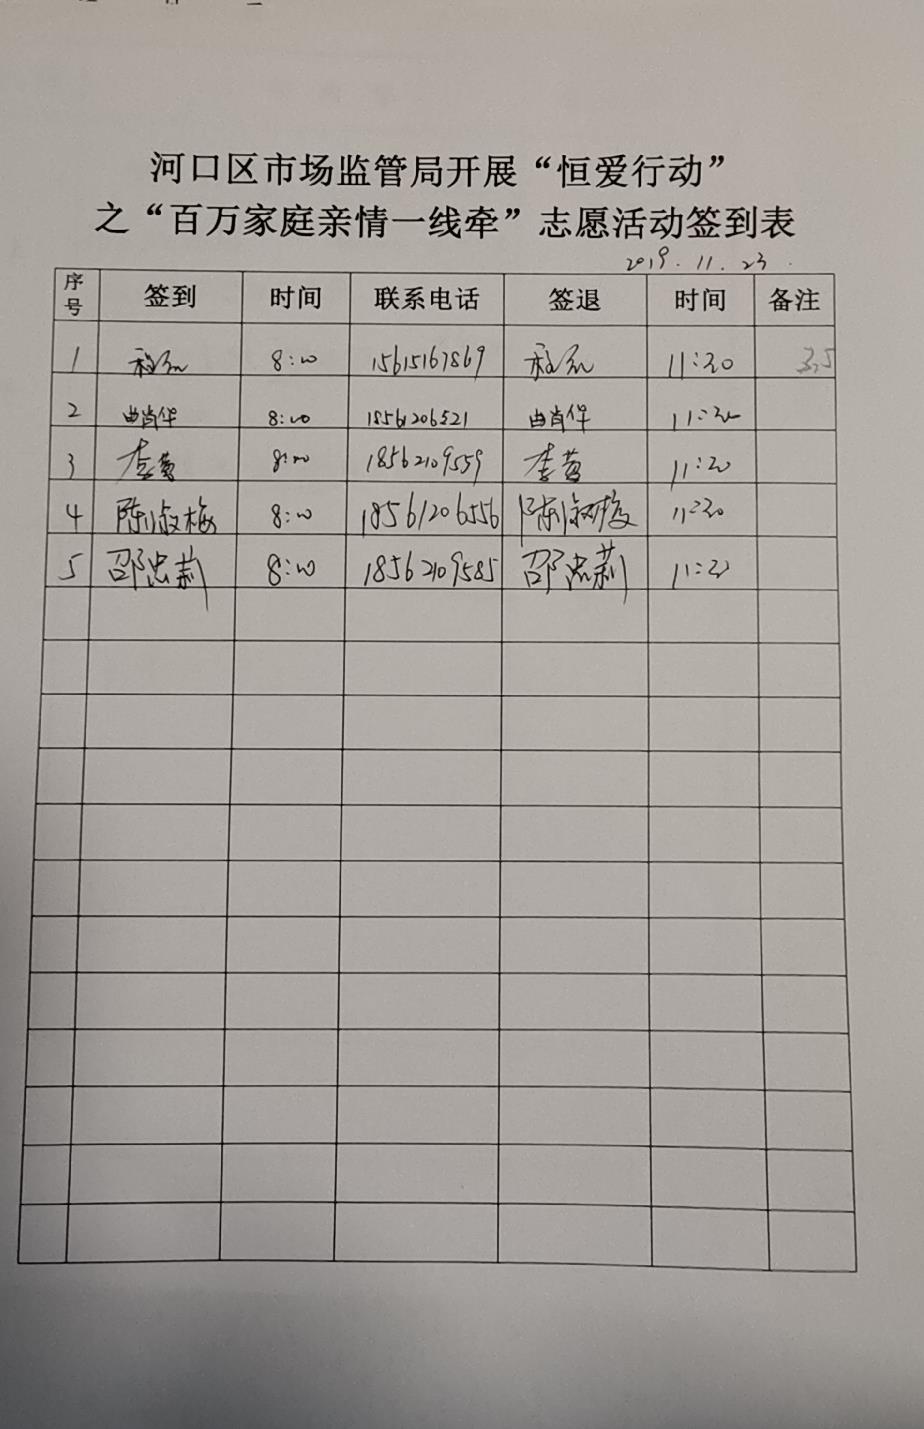 河口区市场监管局开展“恒爱行动”
之“百万家庭亲情一线牵”志愿活动签到表
2019.11.23.
序号 签到 时间 联系电话 签退 时间 备注
1 8:00 15615167869 11:30 3.5
2 曲肖华 8:00 18561206521 曲肖华 11:30
3 李黄 8:00 18562109559 李黄 11:30
4 陈淑梅 8:00 18561206556 陈淑梅 11:30
5 邵忠莉 8:00 18562109585 邵忠莉 11:30